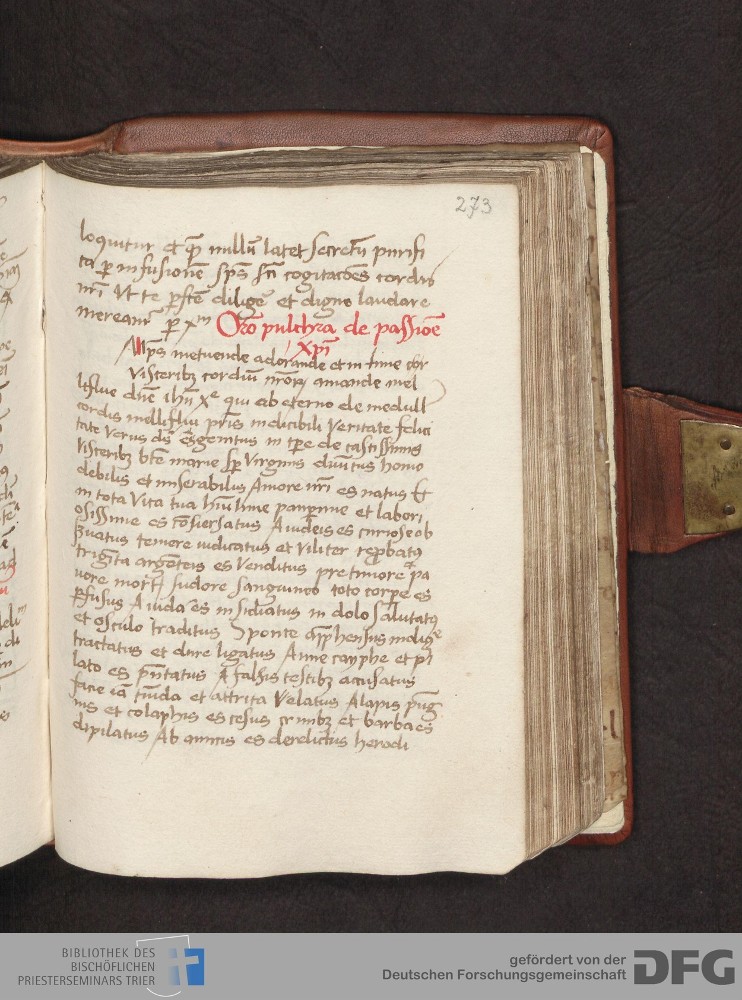 273
loquitur et q̄ nullū latet secretū purifi
ca p̄ infusionē sp̄s sc̄i cogitac̄oes cordis
nr̄i Ut te p̄fcē diligē et digne laudare
mereamr̄ p̄ xm̄ Or̄o pulchra de passiōe
xp̄i
metuende adorande et in time
visceribꝫ cordiū nr̄orū amande mel
liflue dn̄e ihū xp̄e qui ab eterno de medull
cordis melliflui pr̄is indicibili veritate felici
tate verus ds̄ es genitus in tp̄e de castissimis
visceribꝫ bt̄e marie sp̄ virginis diuitus homo
debilis et miserabilis Amore nr̄i es natus Et
in tota vita tua hūilime paup̄rime et labori
osissime es cōuersatus A iudeis es curiose ob
seruatus temore iudicatus et viliter rep̄batꝰ
triginta argēteis es venditus pre timore et pa
uore mortꝭ sudore sanguineo toto corpe es
p̄fusus A iuda es insidiatus in dolo salutatꝰ
et osculo traditus Sponte app̄hensus indigᵉ
tractatus et dure ligatus Anne cayphe et pi
lato es p̄ntatus A falsis testibꝫ accusatus
facie iā liuida et attrita velatus Alapis pug
nis et colaphis es cesus crinibꝫ et barba es
depilatus Ab amicis es derelictus herodi
BIBLIOTHEK DES
BISCHÖFLICHEN
PRIESTERSEMINARS TRIER
gefördert von der
Deutschen Forschungsgemeinschaft
DFG